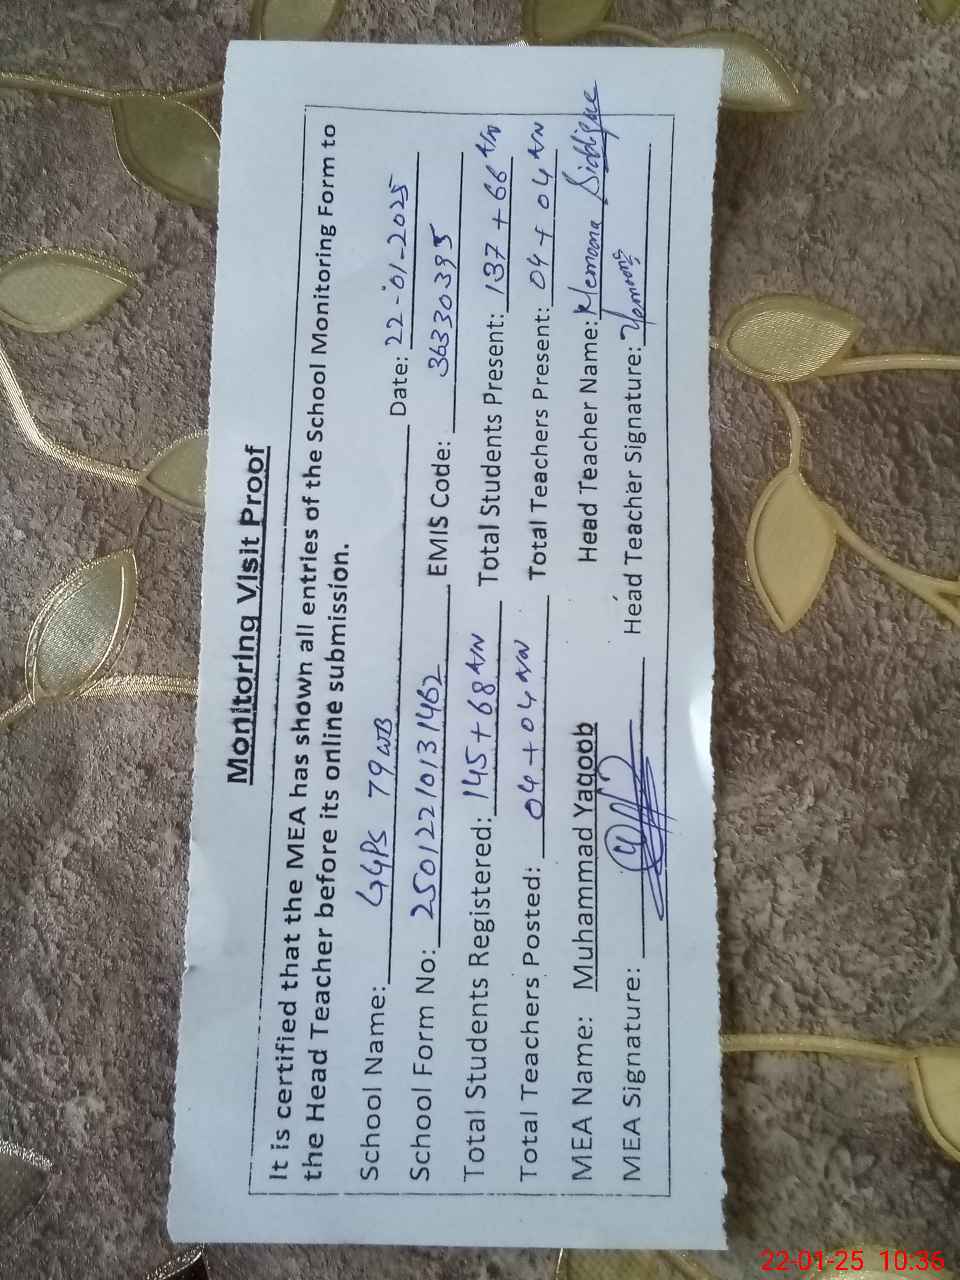 Monitoring Visit Proof
It is certified that the MEA has shown all entries of the School Monitoring Form to
the Head Teacher before its online submission.
School Name: GGPS 79 WB Date: 22-01-2025
School Form No: 2501221013 1462 EMIS Code: 36330395
Total Students Registered: 145 + 68 A/N Total Students Present: 137 + 66 A/N
Total Teachers Posted: 04 + 04 A/N Total Teachers Present: 04 + 04 A/N
MEA Name: Muhammad Yaqoob Head Teacher Name: Memoona Siddique
MEA Signature: Head Teacher Signature:
22-01-25 10:36